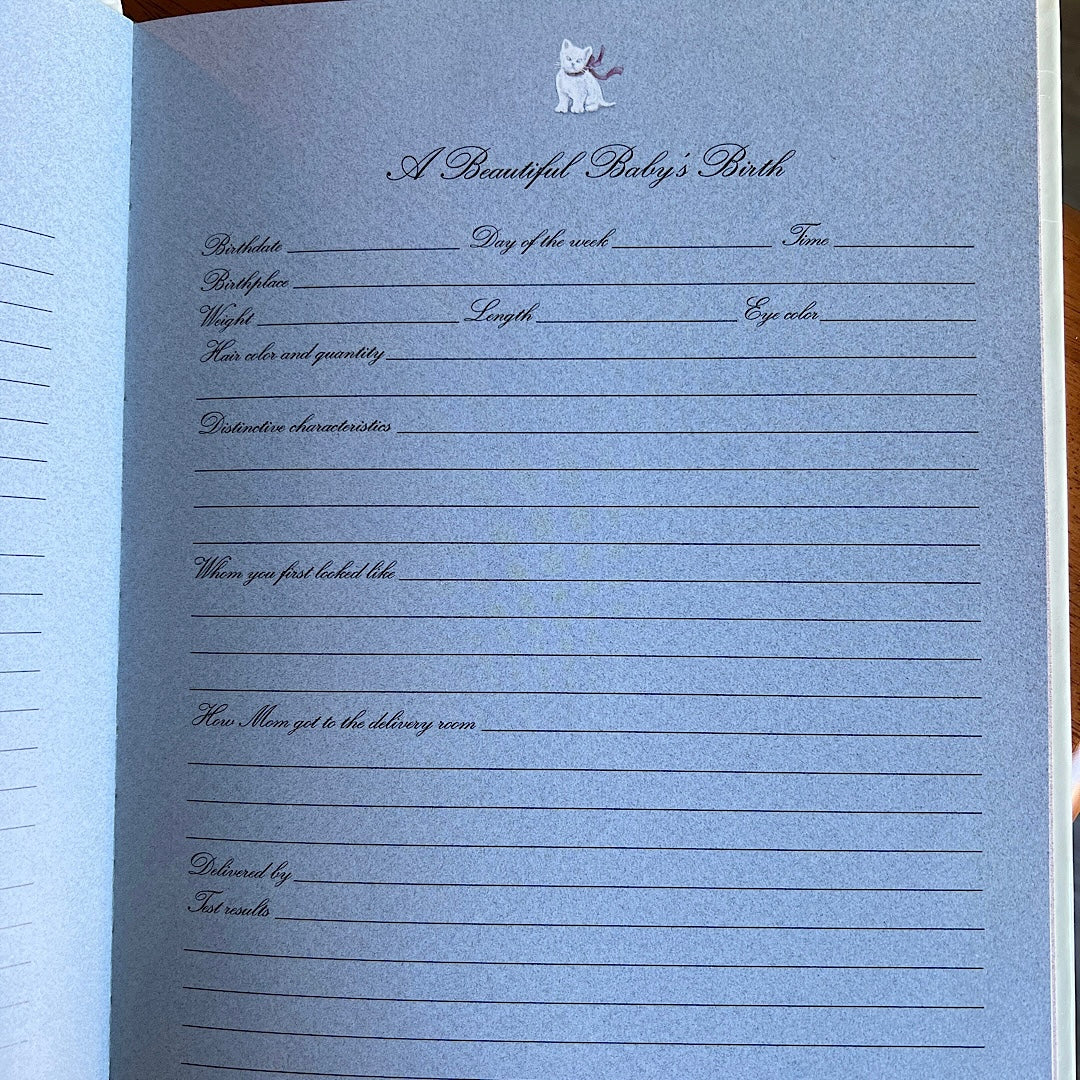 A Beautiful Baby's Birth
Birthdate Day of the week Time
Birthplace
Weight Length Eye color
Hair color and quantity
Distinctive characteristics
Whom you first looked like
How Mom got to the delivery room
Delivered by
Test results